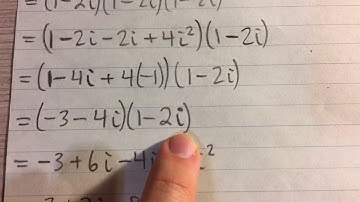 = (1-2i)(1-2i)(1-2i)
= (1-2i-2i+4i²)(1-2i)
= (1-4i+4(-1))(1-2i)
= (-3-4i)(1-2i)
= -3+6i-4i i²